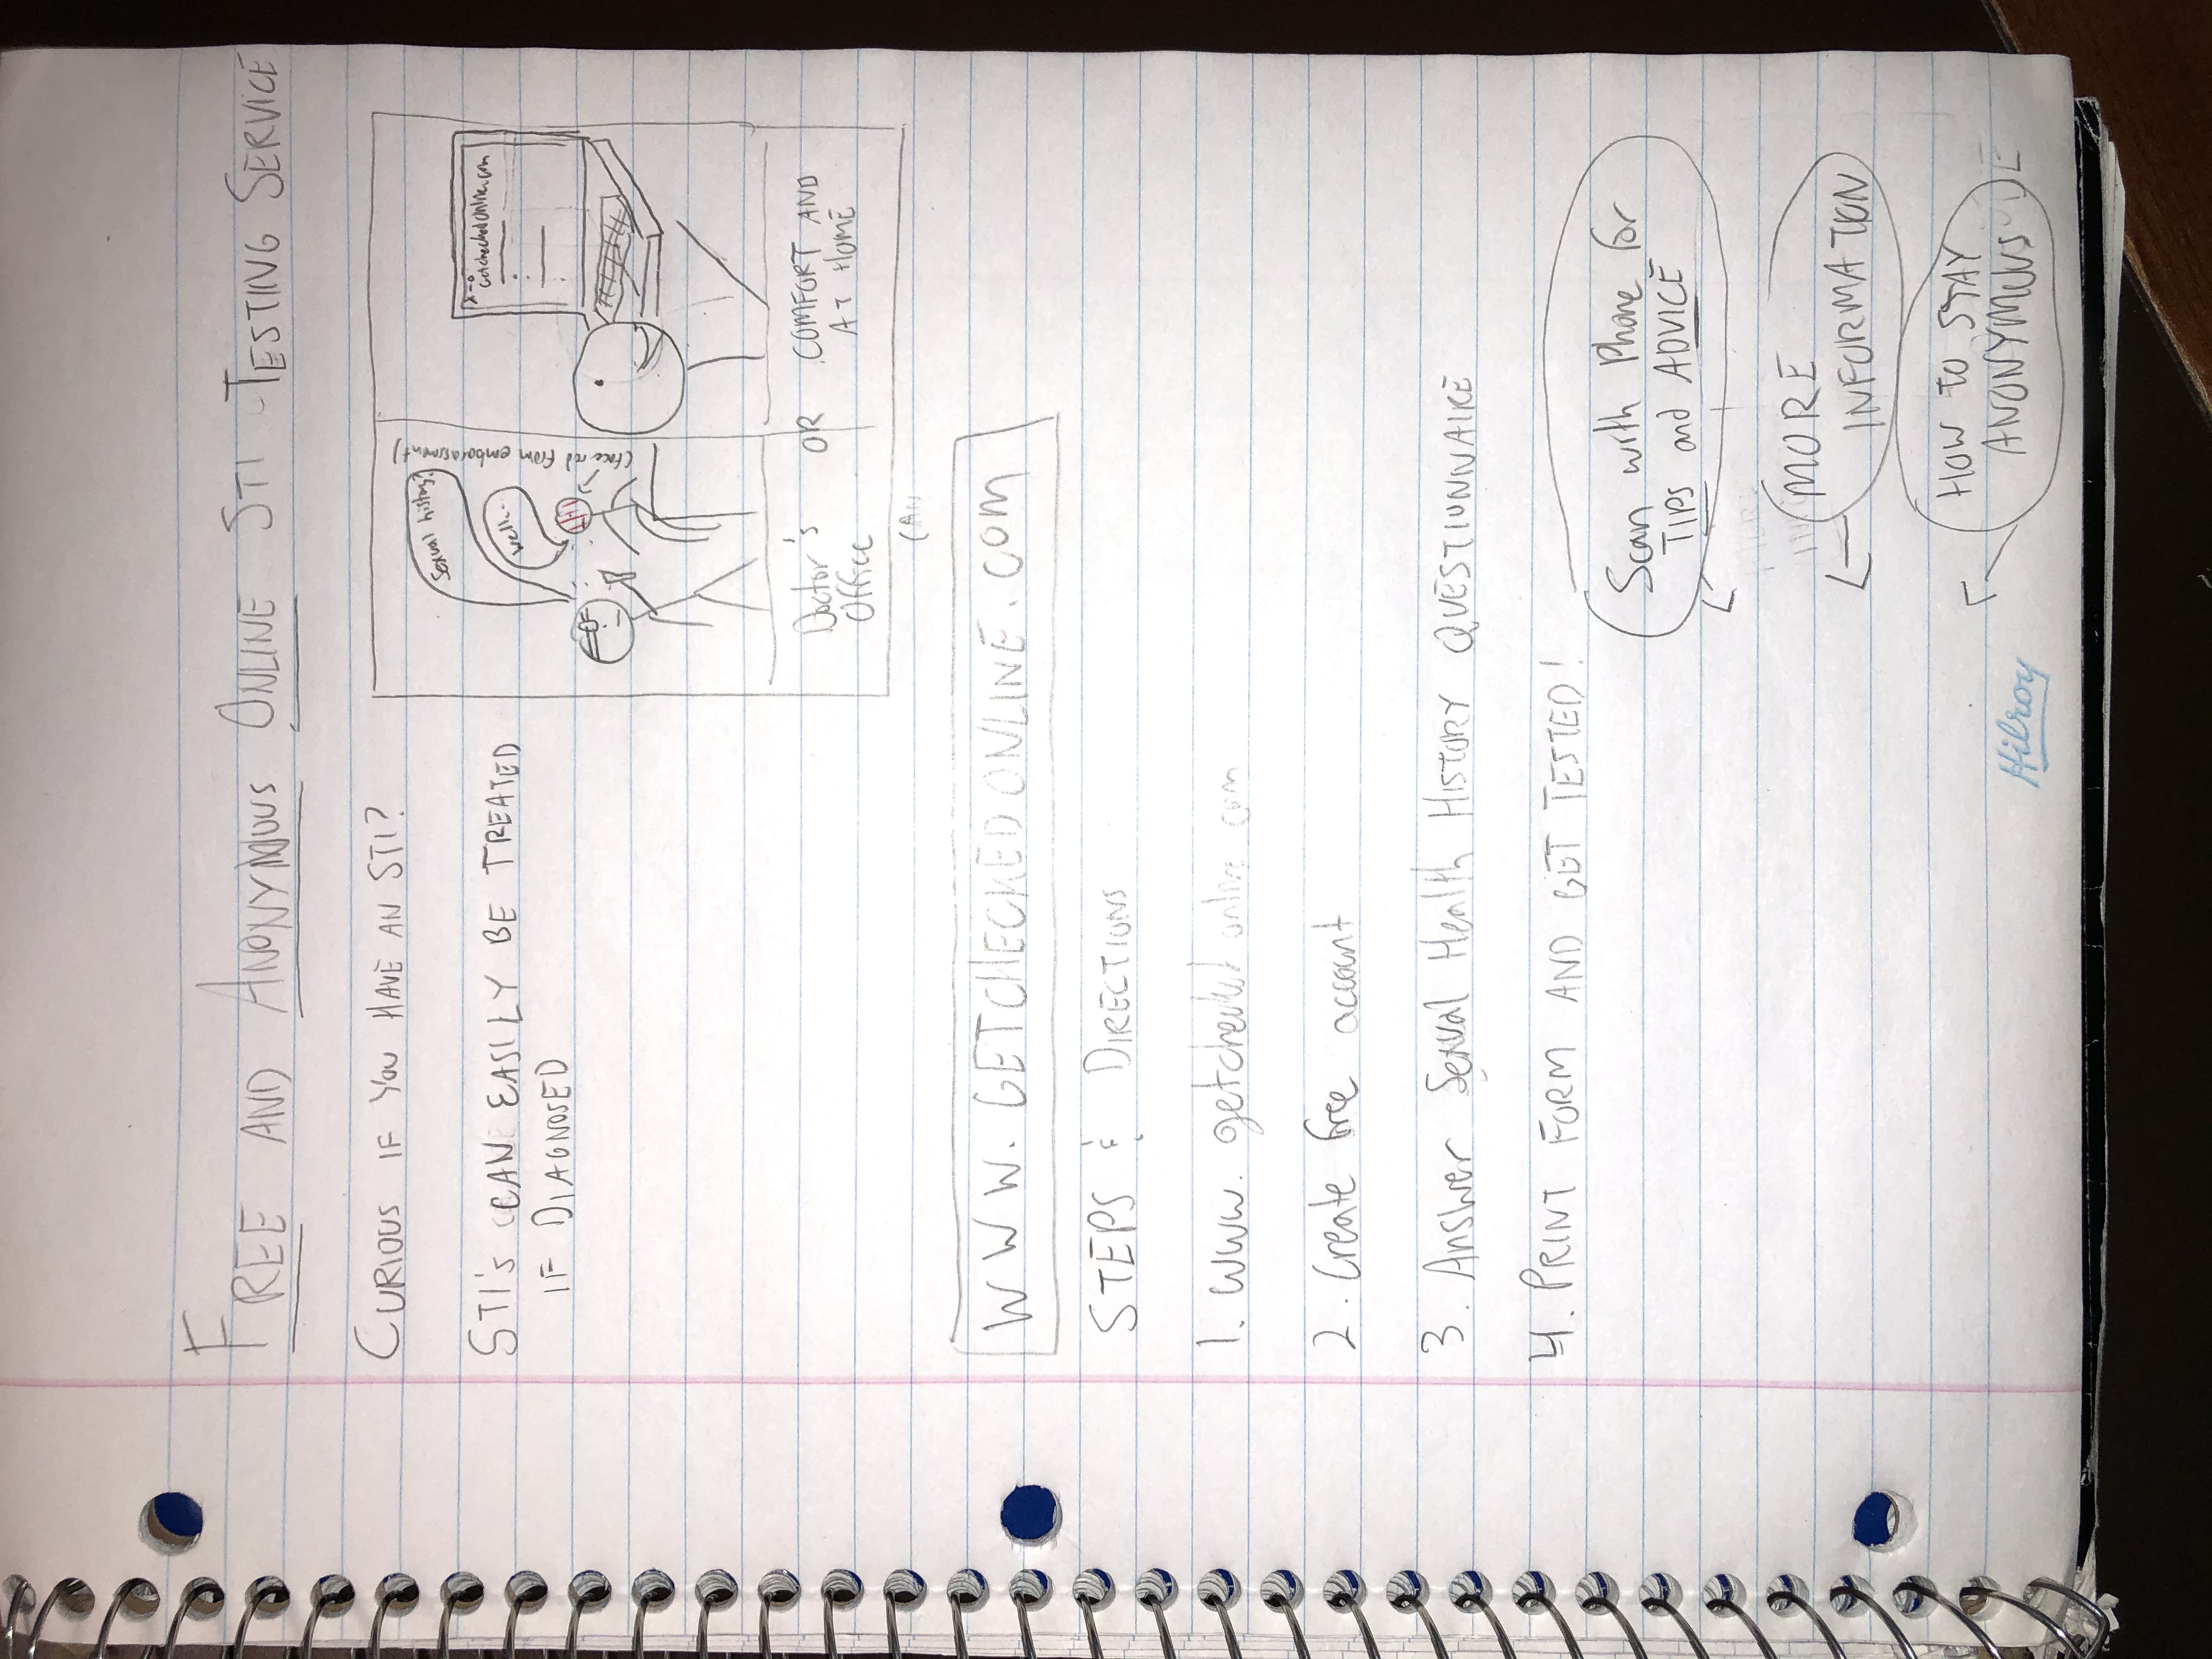 FREE AND ANONYMOUS ONLINE STI TESTING SERVICE
CURIOUS IF YOU HAVE AN STI?
STI's CAN EASILY BE TREATED
IF DIAGNOSED
Sexual history?
Well...
(face red from embarassment)
getcheckedonline.com
Doctor's
Office
OR
COMFORT AND
AT HOME
(AN
WWW.GETCHECKEDONLINE.COM
STEPS & DIRECTIONS
1. www.getcheckedonline.com
2. Create free account
3. Answer Sexual Health HISTORY QUESTIONNAIRE
4. PRINT FORM AND GET TESTED!
Scan with Phone for
TIPS and ADVICE
MORE
INFORMATION
HOW TO STAY
ANONYMOUS
Hilroy